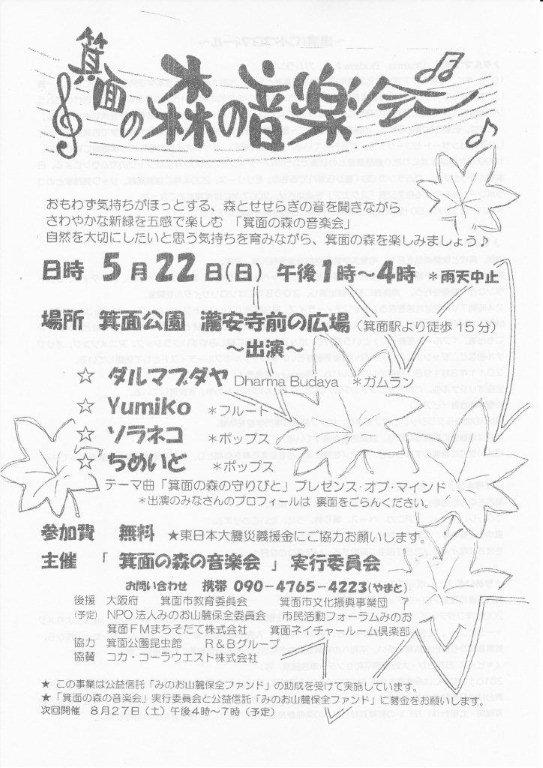 箕面の森の音楽会
おもわず気持ちがほっとする、森とせせらぎの音を聞きながら
さわやかな新緑を五感で楽しむ 「箕面の森の音楽会」
自然を大切にしたいと思う気持ちを育みながら、箕面の森を楽しみましょう♪
日時 5月22日(日) 午後1時～4時 *雨天中止
場所 箕面公園 瀧安寺前の広場 (箕面駅より徒歩15分)
～出演～
☆ ダルマブダヤ Dharma Budaya *ガムラン
☆ Yumiko *フルート
☆ ソラネコ *ポップス
☆ ちめいど *ポップス
テーマ曲「箕面の森の守りびと」プレゼンス・オブ・マインド
*出演のみなさんのプロフィールは 裏面をごらんください。
参加費 無料 ★東日本大震災義援金にご協力お願いします。
主催 「 箕面の森の音楽会 」 実行委員会
お問い合わせ 携帯 090-4765-4223(やまと)
後援 大阪府 箕面市教育委員会 箕面市文化振興事業団
(予定) NPO法人みのお山麓保全委員会 市民活動フォーラムみのお
箕面FMまちそだて株式会社 箕面ネイチャールーム倶楽部
協力 箕面公園昆虫館 R&Bグループ
協賛 コカ・コーラウエスト株式会社
★ この事業は公益信託「みのお山麓保全ファンド」の助成を受けて実施しています。
★「箕面の森の音楽会」実行委員会と公益信託「みのお山麓保全ファンド」に募金をお願いします。
次回開催 8月27日(土)午後4時～7時(予定)